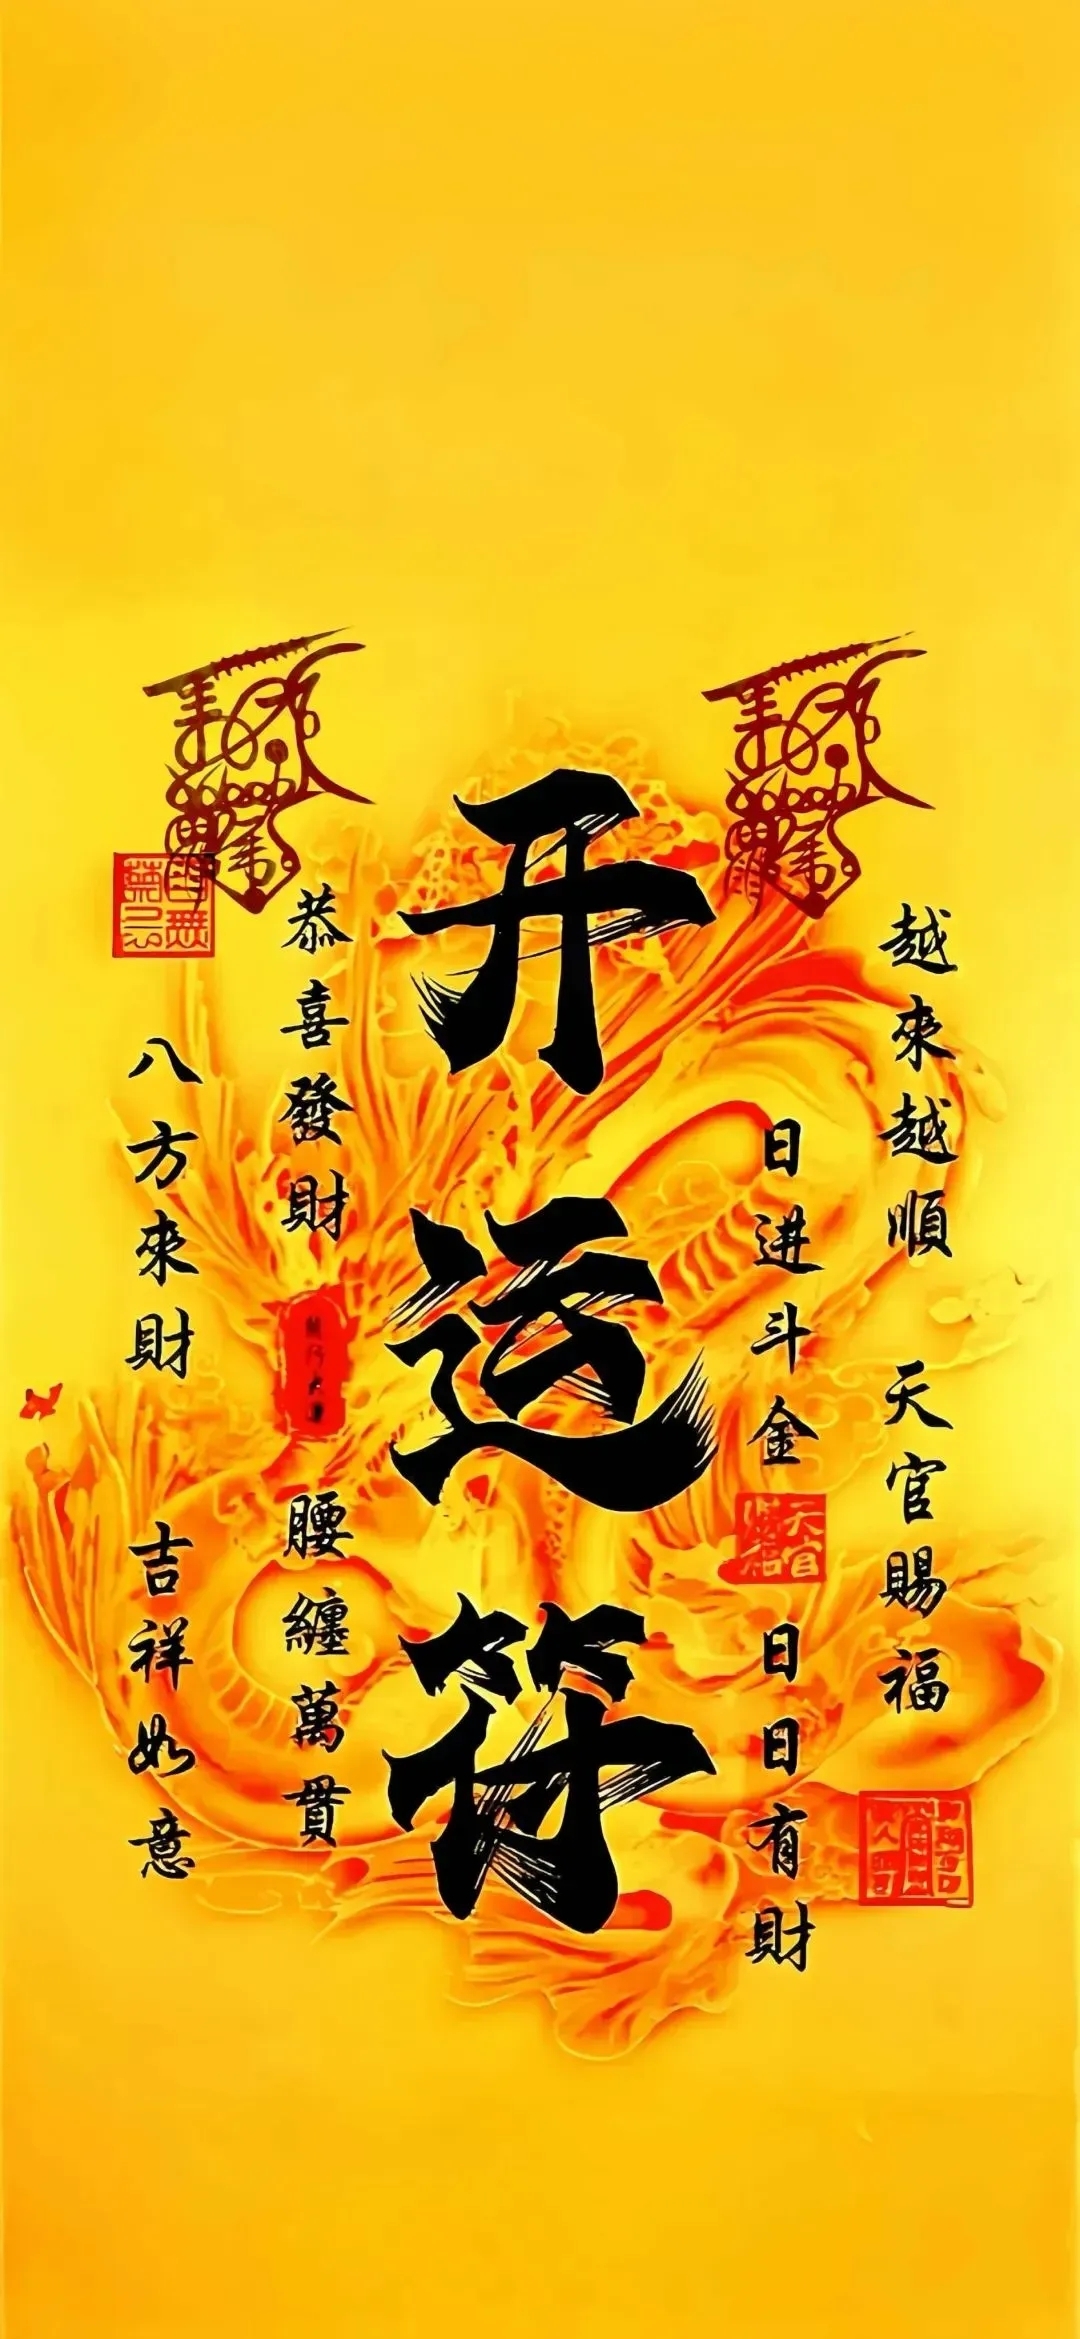 越來越順 天官賜福
日进斗金 日日有財
天官賜福
开运符
恭喜發財 腰纏萬貫
八方來財 吉祥如意